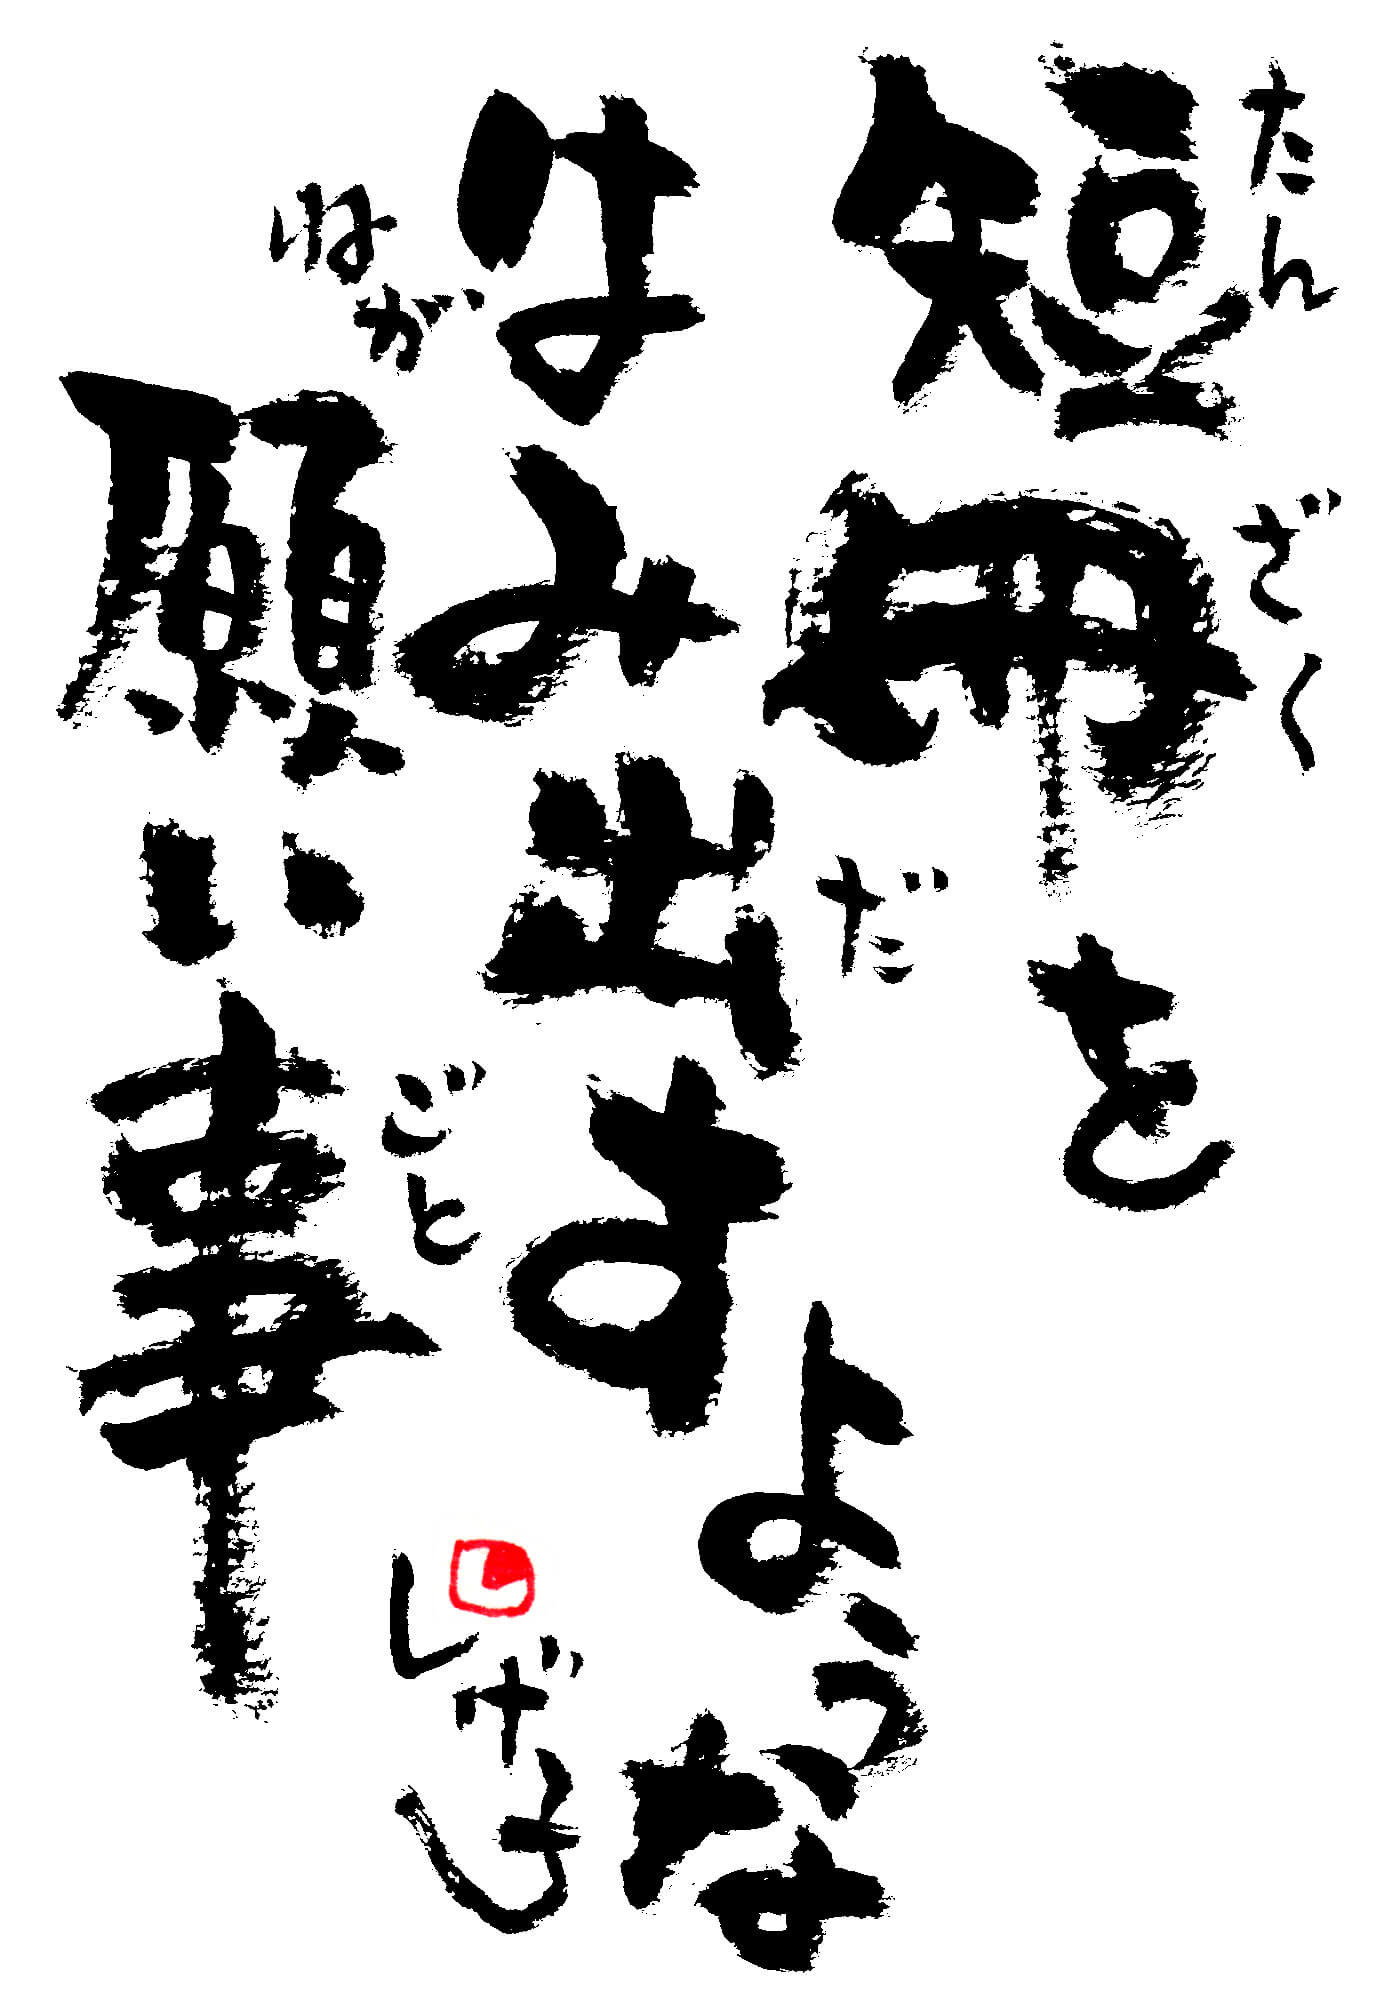 短冊を
はみ出すような
願い事
たんざく
だ
ねが
ごと
しげ子
し